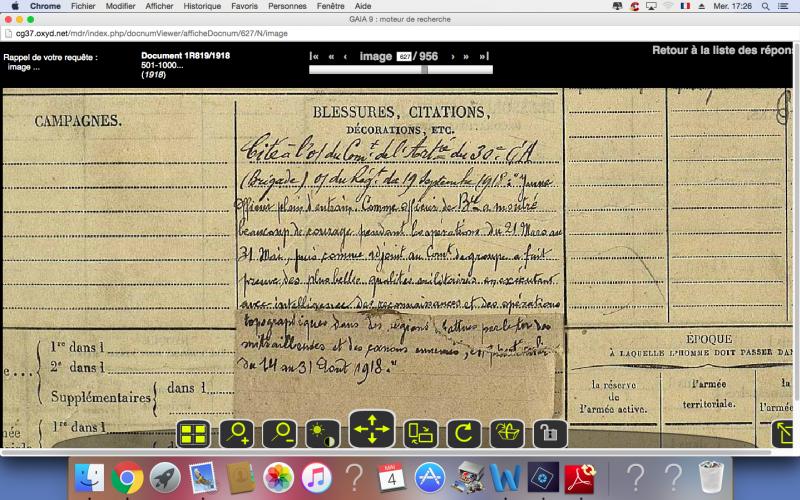 Chrome Fichier Modifier Afficher Historique Favoris Personnes Fenêtre Aide Mer. 17:26
GAIA 9 : moteur de recherche
cg37.oxyd.net/mdr/index.php/docnumViewer/afficheDocnum/627/N/image
Rappel de votre requête :
image ...
Document 1R819/1918
501-1000...
(1918)
I« « ‹ image 627 / 956 › » »I
Retour à la liste des répon
CAMPAGNES.
BLESSURES, CITATIONS,
DÉCORATIONS, ETC.
Cité à l'O/ du Comt. de l'Artie du 30e C A
(Brigade) O/ du Régt. de 19 Septembre 1918 : "Jeune
officier plein d'entrain. Comme officier de Bie a montré
beaucoup de courage pendant les opérations du 21 Mars au
31 Mai, puis comme adjoint au Comt de groupe a fait
preuve des plus belles qualités militaires en exécutant
avec intelligence des reconnaissances et des opérations
topographiques dans des régions battues par le tir des
mitrailleuses et des canons ennemis, en
du 14 au 31 Août 1918."
1re dans l
2e dans l
Supplémentaires dans l
1re dans l
ÉPOQUE
À LAQUELLE L'HOMME DOIT PASSER DAN
la réserve
de
l'armée active.
l'armée
territoriale.
la
l'armée
MAI
4